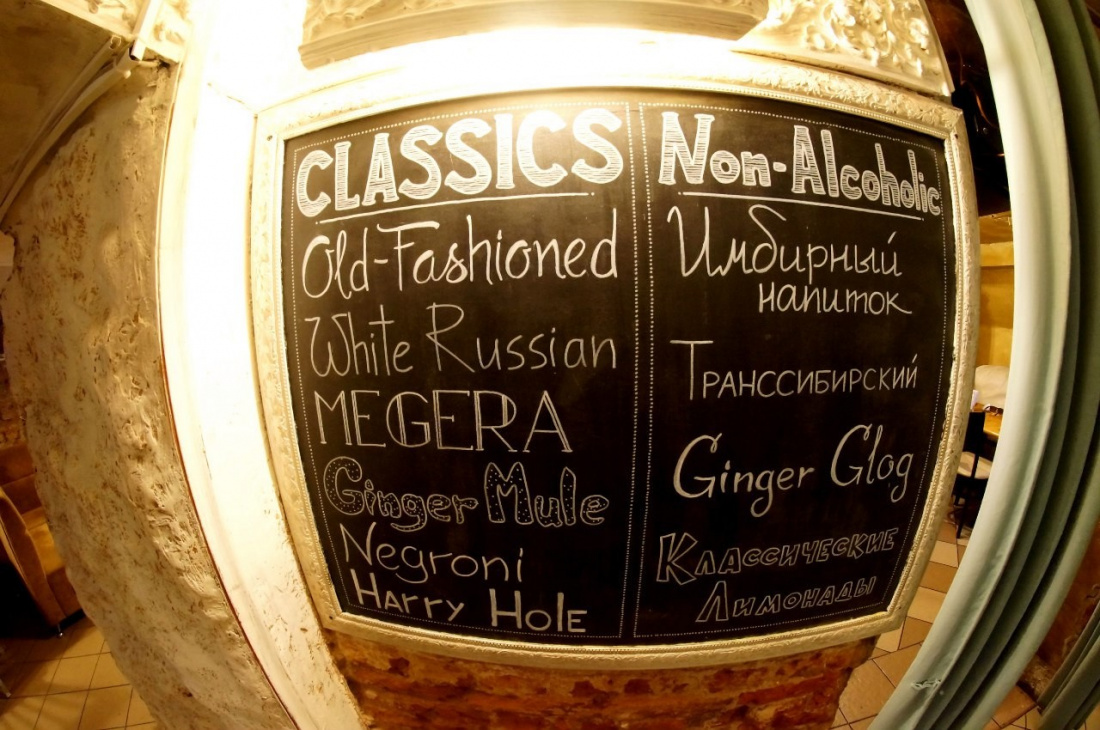 CLASSICS
Old-Fashioned
White Russian
MEGERA
Ginger Mule
Negroni
Harry Hole
Non-Alcoholic
Имбирный
напиток
Транссибирский
Ginger Glog
Классические
Лимонады